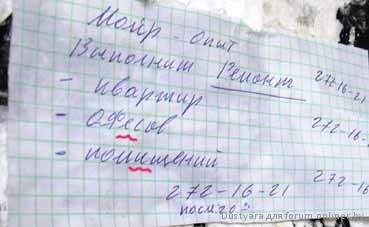 Мойр - опыт
Выполнит Ремонт
- квартир
- офесов
- помищений
272-16-21
после 20
277-16-21
272-16-
272-16
Dustyara для forum.onliner.by